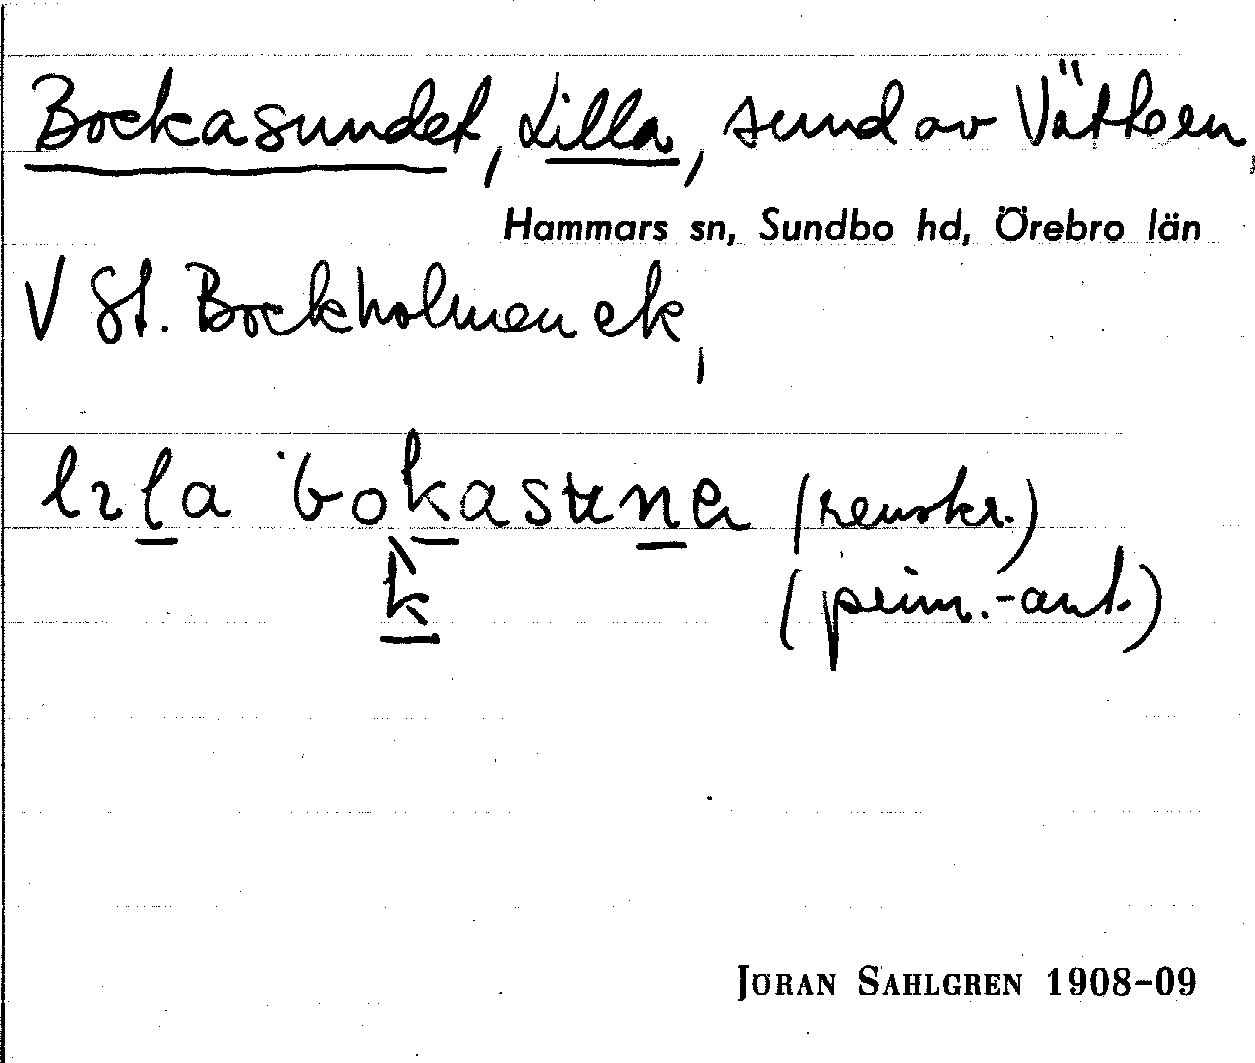 Bockasundet, Lilla, sund av Vättern,
Hammars sn, Sundbo hd, Örebro län
V St. Bockholmen ek,
(renskr.)
k
(prim.-ant.)
JÖRAN SAHLGREN 1908-09